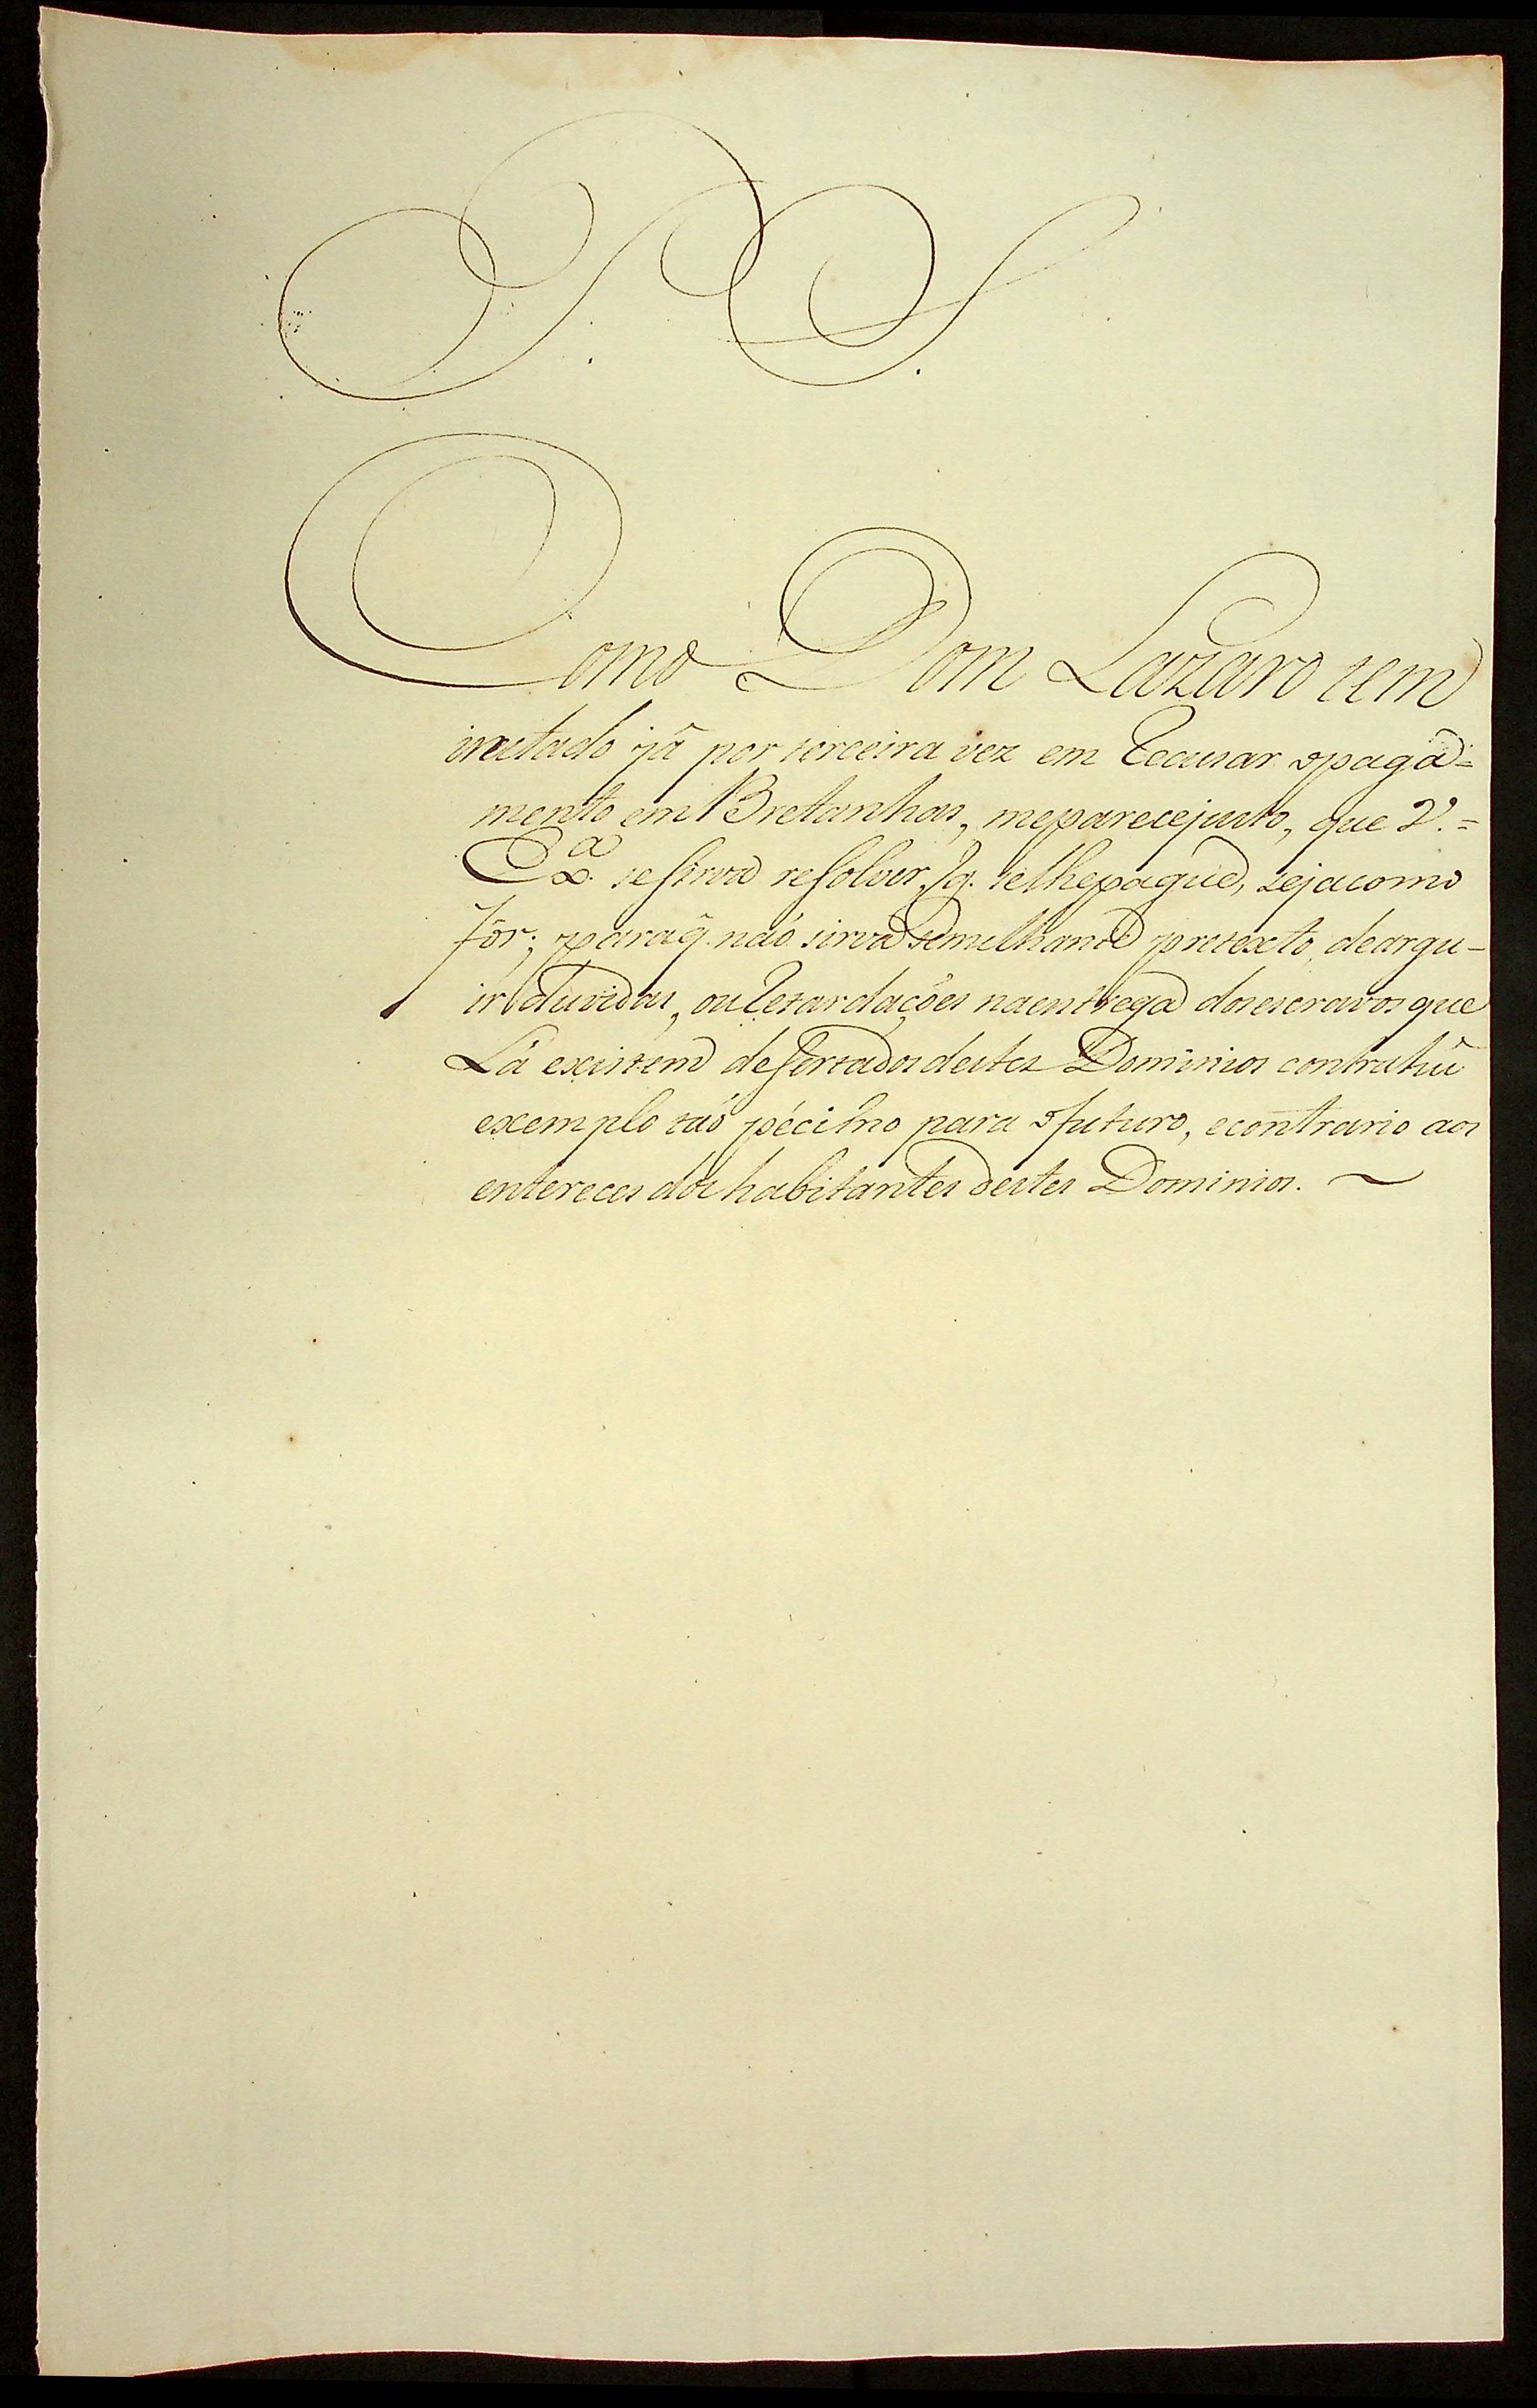 P. S.
Como Dom Lazaro tem
inxitado já por terceira vez em Recusar o paga=
mento em Bretanhas, me parece justo, que V.=
Exª. se sirva resolver, q. se lhe pague, seja como
fôr; para q̃. naõ sirva semelhante pretexto, de argu-
ir duvidas, ou Retardações na entrega dos escravos que
Lá existem desertados destes Dominios contra hũ
exemplo taõ pécimo para o futuro, e contrario aos
entereces dos habitantes destes Dominios. ~